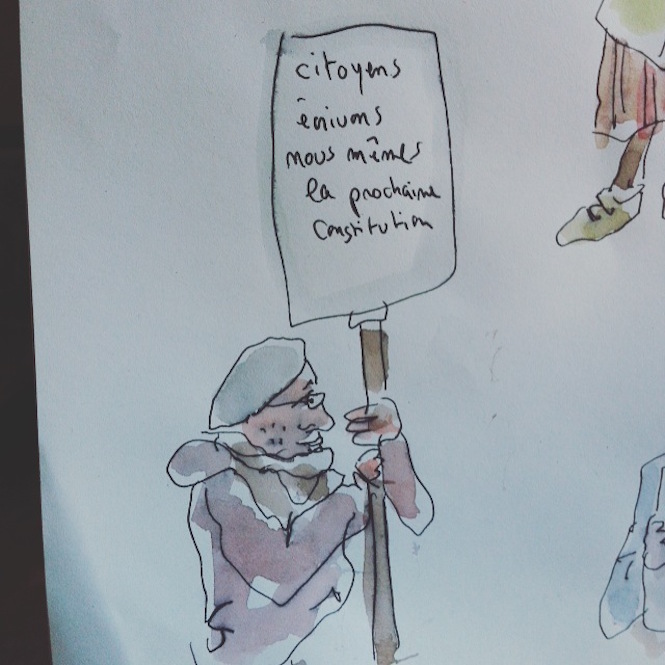 citoyens
écrivons
nous mêmes
la prochaine
Constitution